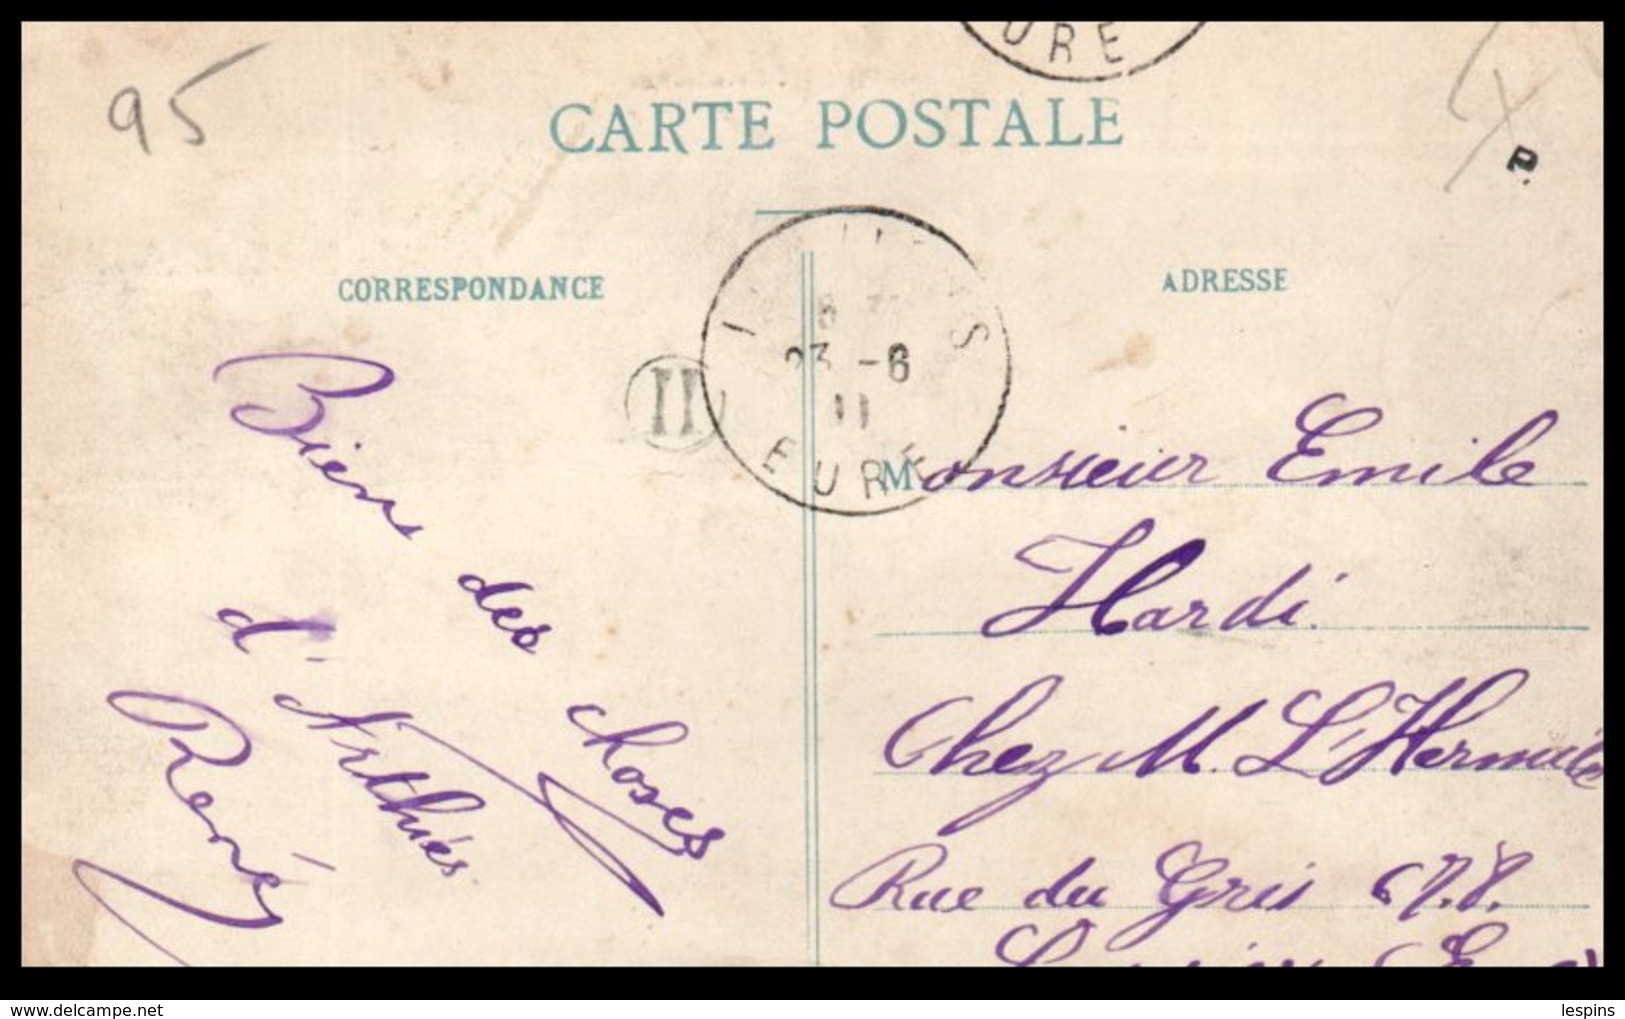 95
URE
CARTE POSTALE
P.
CORRESPONDANCE
ADRESSE
II
23 -6
11
EURE
Bien
des
choses
d'Arthiès.
René
Monsieur Emile
Hardi.
Chez M. L'Hermite
Rue du Gris
delcampe.net
lespins